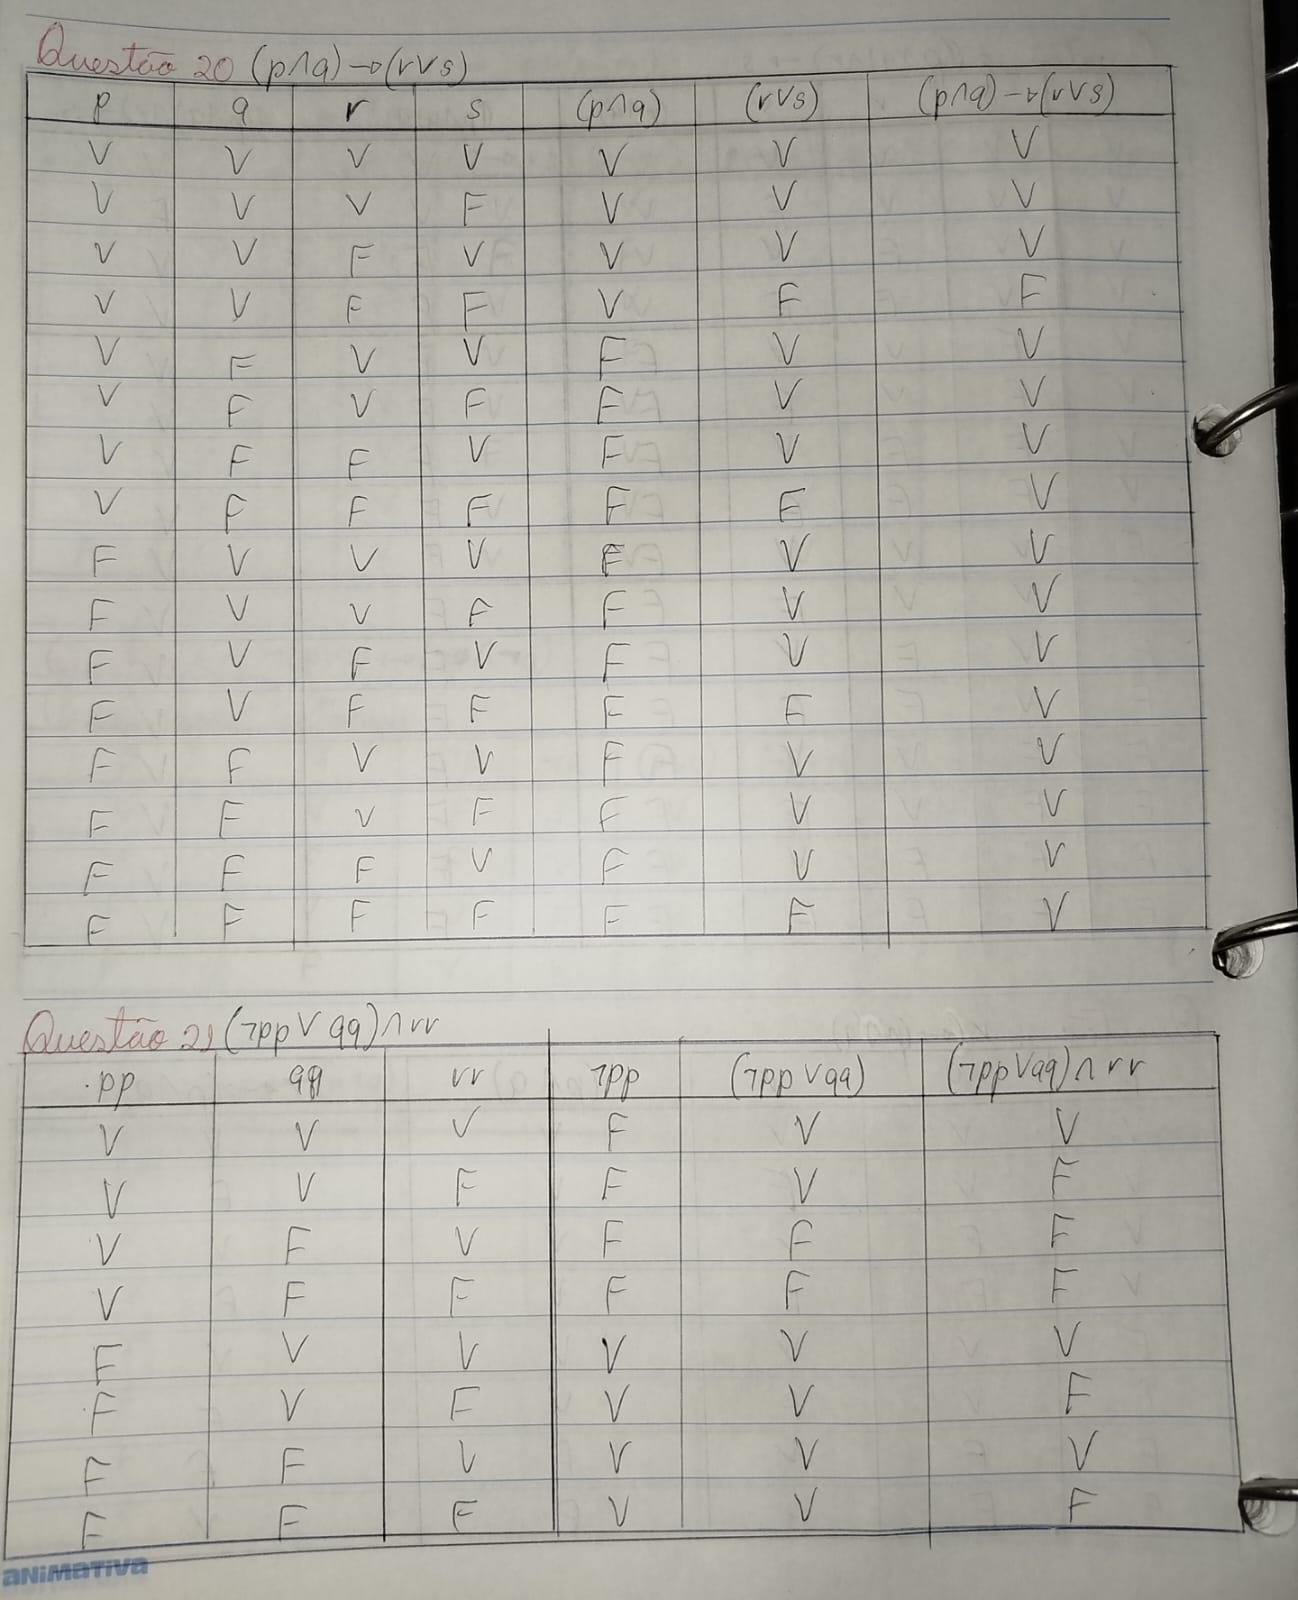 Questão 20 (p∧q)→(r∨s)
p q r s (p∧q) (r∨s) (p∧q)→(r∨s)
V V V V V V V
V V V F V V V
V V F V V V V
V V F F V F F
V F V V F V V
V F V F F V V
V F F V F V V
V F F F F F V
F V V V F V V
F V V F F V V
F V F V F V V
F V F F F F V
F F V V F V V
F F V F F V V
F F F V F V V
F F F F F F V
Questão 21 (¬pp∨qq)∧rr
pp qq rr ¬pp (¬pp∨qq) (¬pp∨qq)∧rr
V V V F V V
V V F F V F
V F V F F F
V F F F F F
F V V V V V
F V F V V F
F F V V V V
F F F V V F
aNiMaTiVa